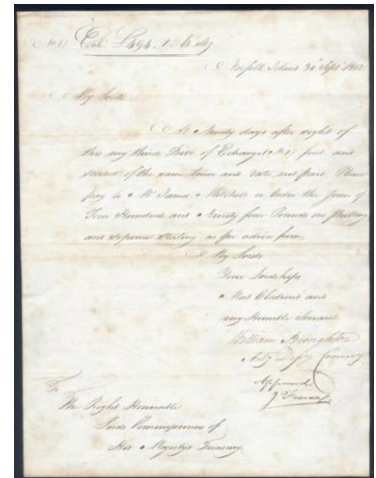 (No. 81) Exch. £494. 1. 6 Stg
Norfolk Island 30 Sept. 1812
My Lords
At Ninety days after sight of
this my third Bill of Exchange No. 81 first and
second of the same Tenor and date not paid Please
pay to Mr James Mitchell or Order the Sum of
Four Hundred and Ninety four Pounds one Shilling
and sixpence Sterling as per advice from
My Lords
Your Lordships
Most Obedient and
very Humble Servant
William Broughton
Actg Depy Commy
Approved
To
The Right Honorable
Lords Commissioners of
His Majestys Treasury